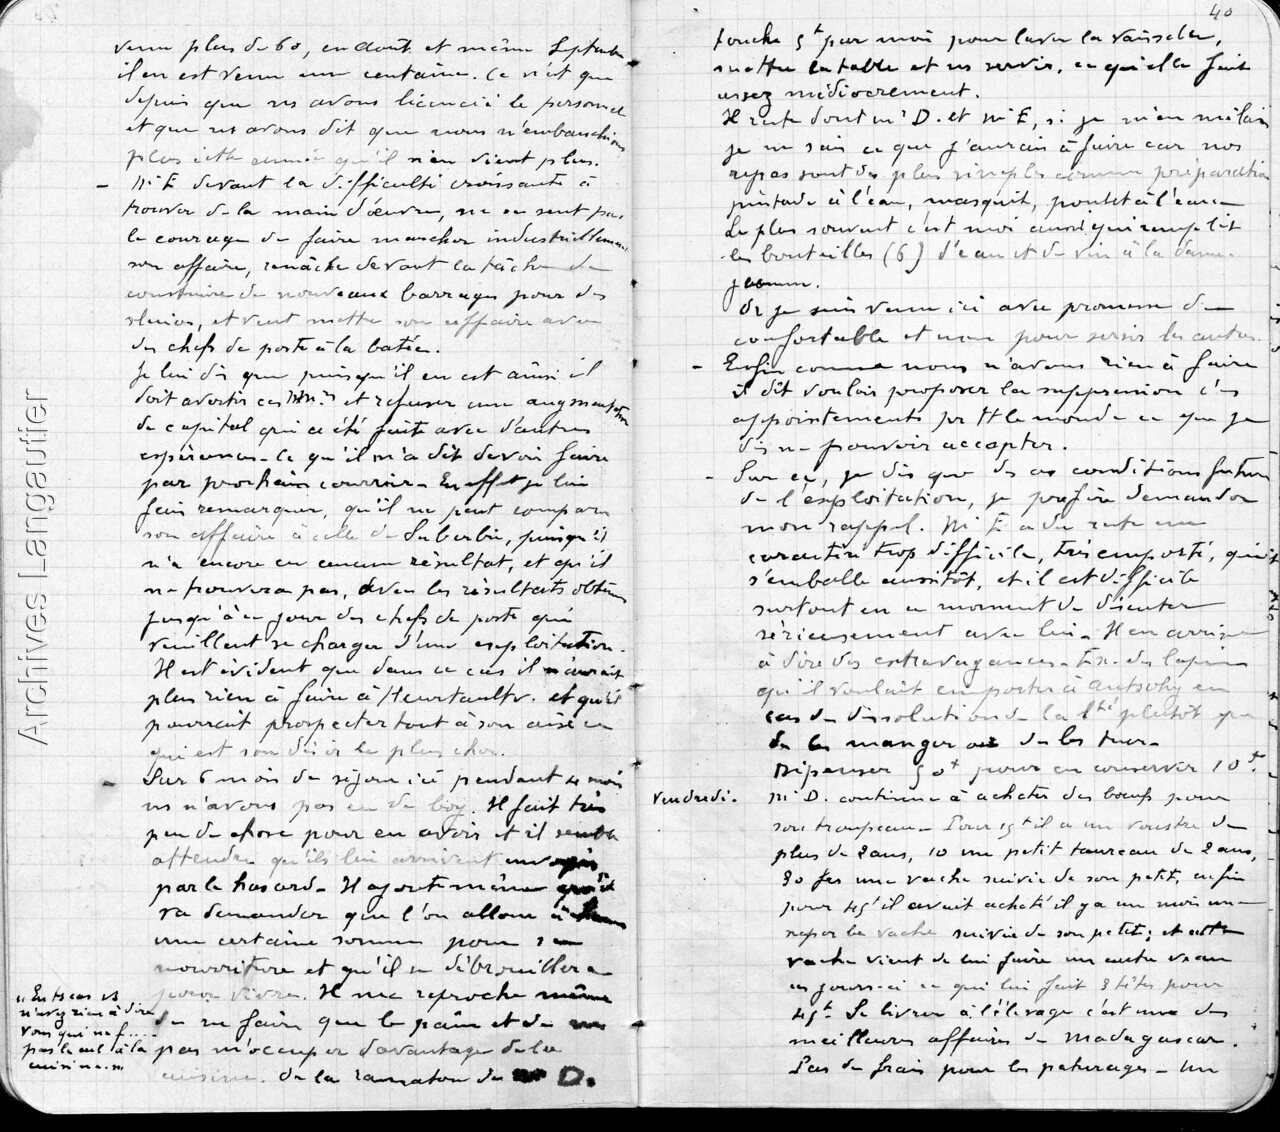 venu plus de 60, en août et même Septembre
il en est venu une centaine. Ce n'est que
depuis que ns avons licencié le personnel
et que ns avons dit que nous n'embauchions
plus cette année qu'il n'en vient plus.
- Mr E devant la difficulté croissante à
trouver de la main d'œuvre, ne se sent pas
le courage de faire marcher industriellement
son affaire, renâcle devant la tâche de
construire de nouveaux barrages pour des
sluices, et veut mettre son affaire avec
des chefs de poste à la batée.
Je lui dis que puisqu'il en est ainsi il
doit avertir ces MM. et refuser une augmentation
de capital qui a été faite avec d'autres
espérances - Ce qu'il m'a dit devoir faire
par prochain courrier - En effet je lui
fais remarquer, qu'il ne peut comparer
son affaire à celle de Suberbie, puisqu'il
n'a encore eu aucun résultat, et qu'il
ne trouvera pas, avec les résultats obtenus
jusqu'à ce jour des chefs de poste qui
veuillent se charger d'une exploitation.
Il est évident que dans ce cas il n'aurait
plus rien à faire à et qu'il
pourrait prospecter tout à son aise ce
qui est son désir le plus cher.
- Sur 6 mois de séjour ici pendant 4 mois
ns n'avons pas eu de boy. Il fait très
peu de chose pour en avoir et il semble
attendre qu'ils lui arrivent
par le hasard - Il ajoute même qu'il
va demander que l'on alloue à
une certaine somme pour
nourriture et qu'il se débrouillera
pour vivre. Il me reproche même
de ne faire que le pain et de
pas m'occuper davantage de la
cuisine. De la ramatoa de D.
"En ts cas vs
n'avez rien à dire
vous qui ne f....
pas le cul à la
cuisine."
40
touche 5f par mois pour laver la vaisselle,
mettre la table et ns servir, ce qu'elle fait
assez médiocrement.
Il reste dont Mr D. et Mr E, si je m'en mêlais
je ne sais ce que j'aurais à faire car nos
repas sont des plus simples comme préparation
pintade à l'eau, poulet à l'eau -
Le plus souvent c'est moi aussi qui remplit
les bouteilles (6) d'eau et de vin à la dame-
jeanne.
Or je suis venu ici avec promesse de
confortable et non pour servir les autres.
- Enfin comme nous n'avons rien à faire
il dit vouloir proposer la suppression des
appointements pr tt le monde ce que je
dis ne pouvoir accepter.
- Sur ce, je dis que ds ces conditions futures
de l'exploitation, je préfère demander
mon rappel. Mr E a du reste un
caractère trop difficile, très emporté, qui
s'emballe aussitôt, et il est difficile
surtout en ce moment de discuter
sérieusement avec lui - Il en arrive
à dire des extravagances - Ex. des lapins
qu'il voulait emporter à Antsohy en
cas de dissolution de la Sté plutôt que
de les manger ou de les tuer -
Dépenser 50f pour en conserver 10f.
Vendredi. Mr D. continue à acheter des bœufs pour
son troupeau - Pour 15f il a un de
plus de 2 ans, 10 un petit taureau de 2 ans,
30 frs une vache suivie de son petit, enfin
pour 45f il avait acheté il y a un mois une
vache suivie de son petit; et cette
vache vient de lui faire un autre veau
ces jours-ci ce qui lui fait 3 têtes pour
45f. Se livrer à l'élevage c'est une des
meilleures affaires de Madagascar.
Pas de frais pour les paturages - Un
Archives Langautier